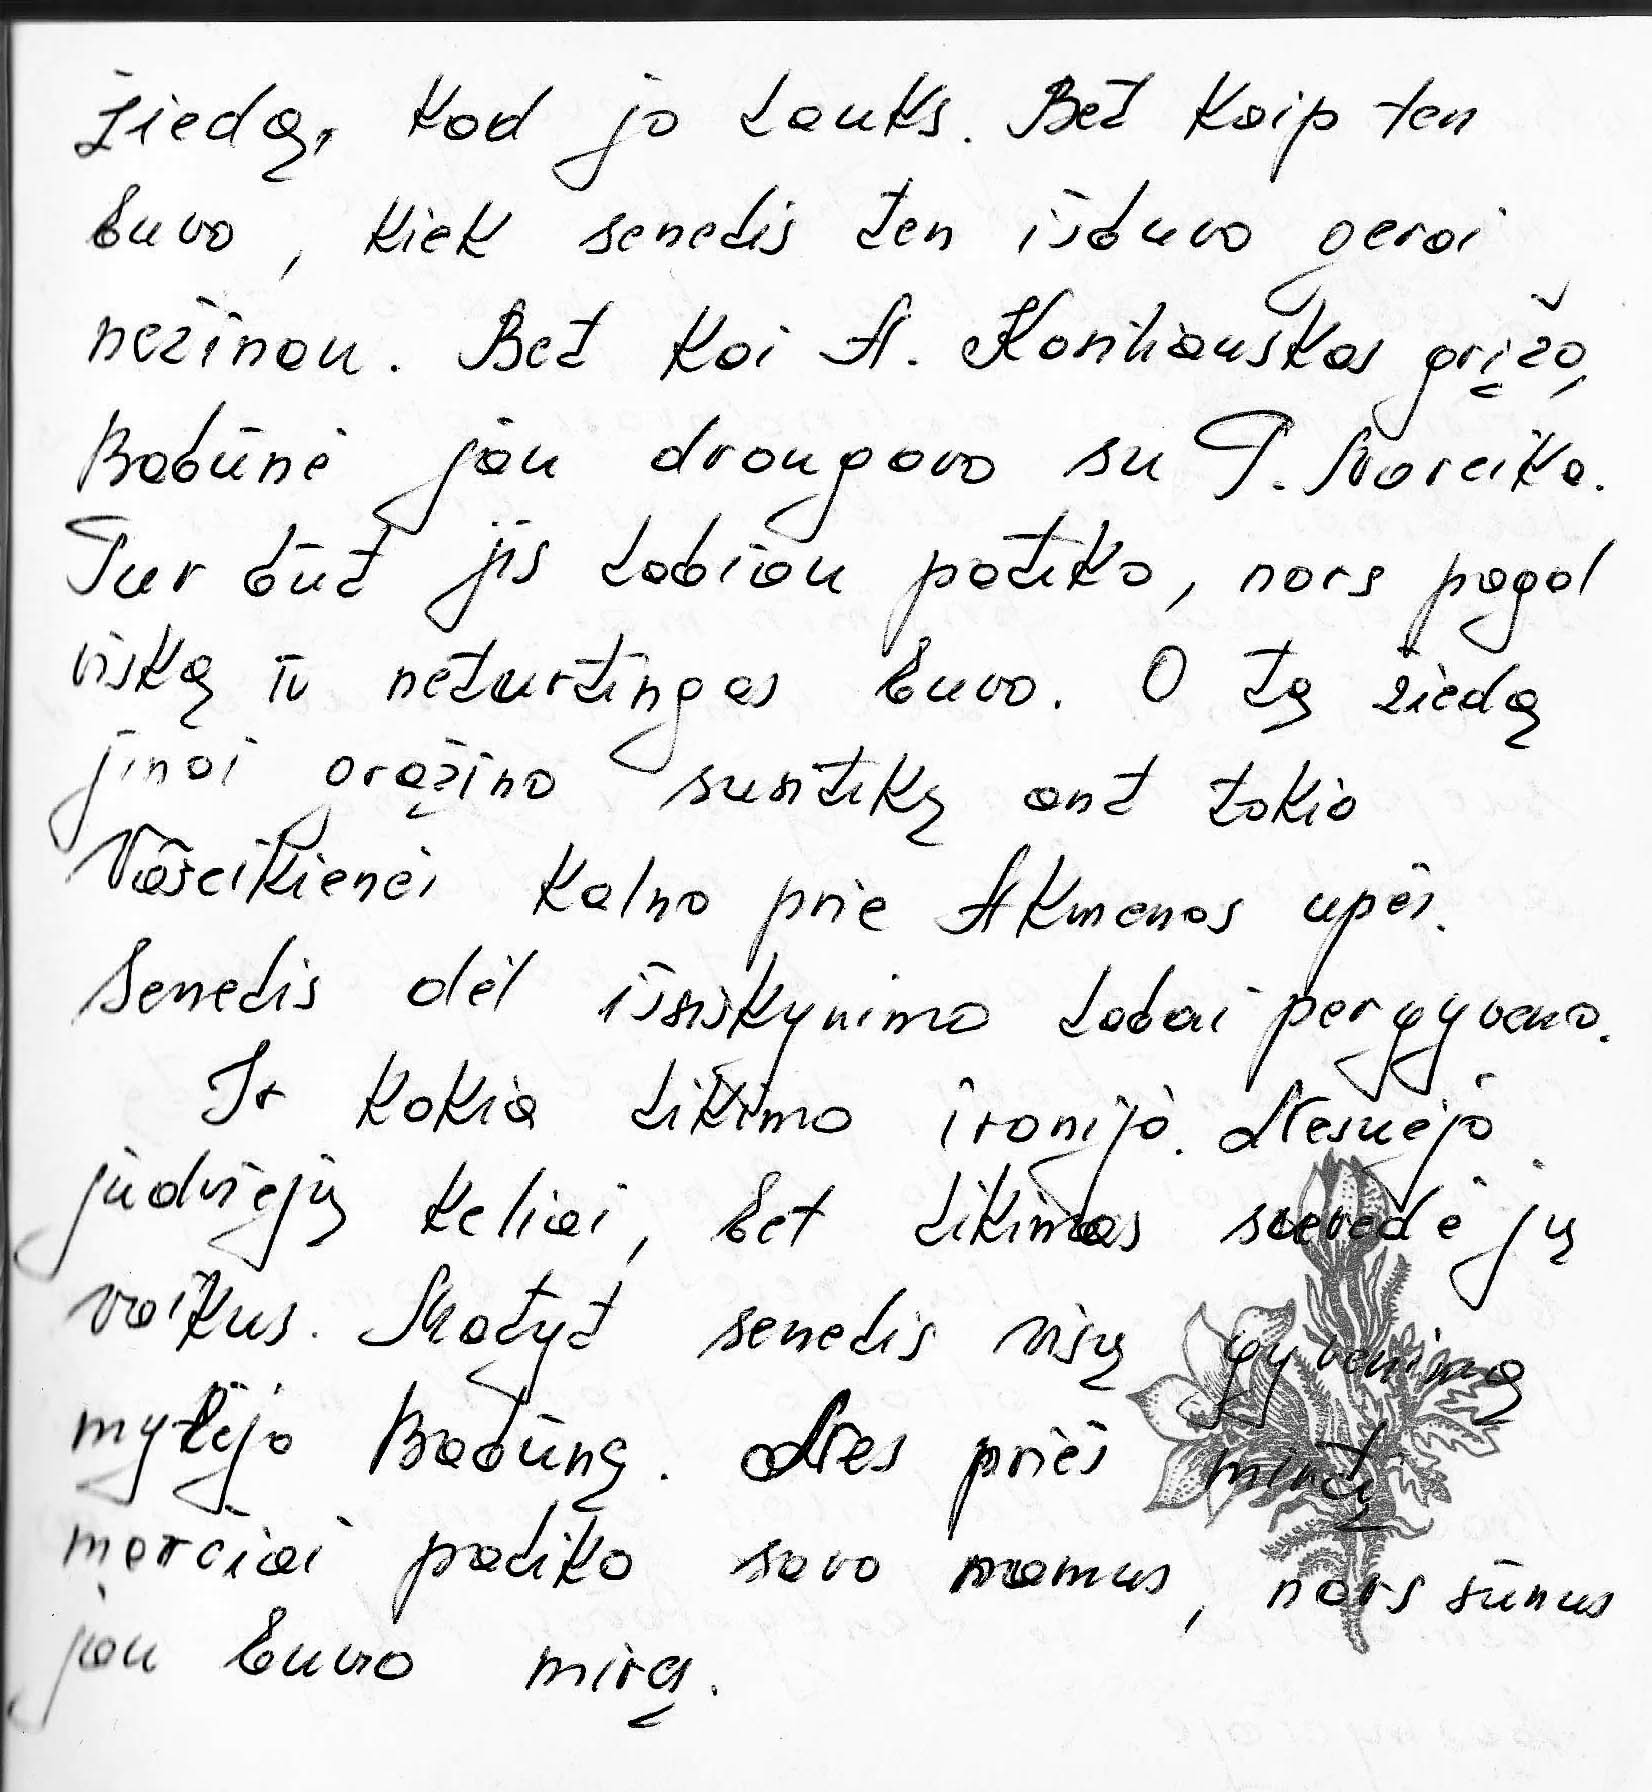 žiedą, kad jo lauks. Bet kaip ten
buvo, kiek senelis ten išbuvo gerai
nežinau. Bet kai A. Kasiliauskas grįžo,
Babūnė jau draugavo su P. Mareika.
Tur būt jis labiau patiko, nors pagal
viską ir neturtingas buvo. O tą žiedą
jinai grąžino susitikę ant tokio
Vašeikienės kalno prie Akmenos upės.
Senelis dėl išsiskynimo labai pergyveno.
Ir kokia likimo ironija. Nesuėjo
judviejų keliai, bet likimas suvedė jų
vaikus. Matyt senelis visą gyvenimą
mylėjo Babūnę. Nes prieš mirtį
marčiai paliko savo namus, nors sūnus
jau buvo miręs.